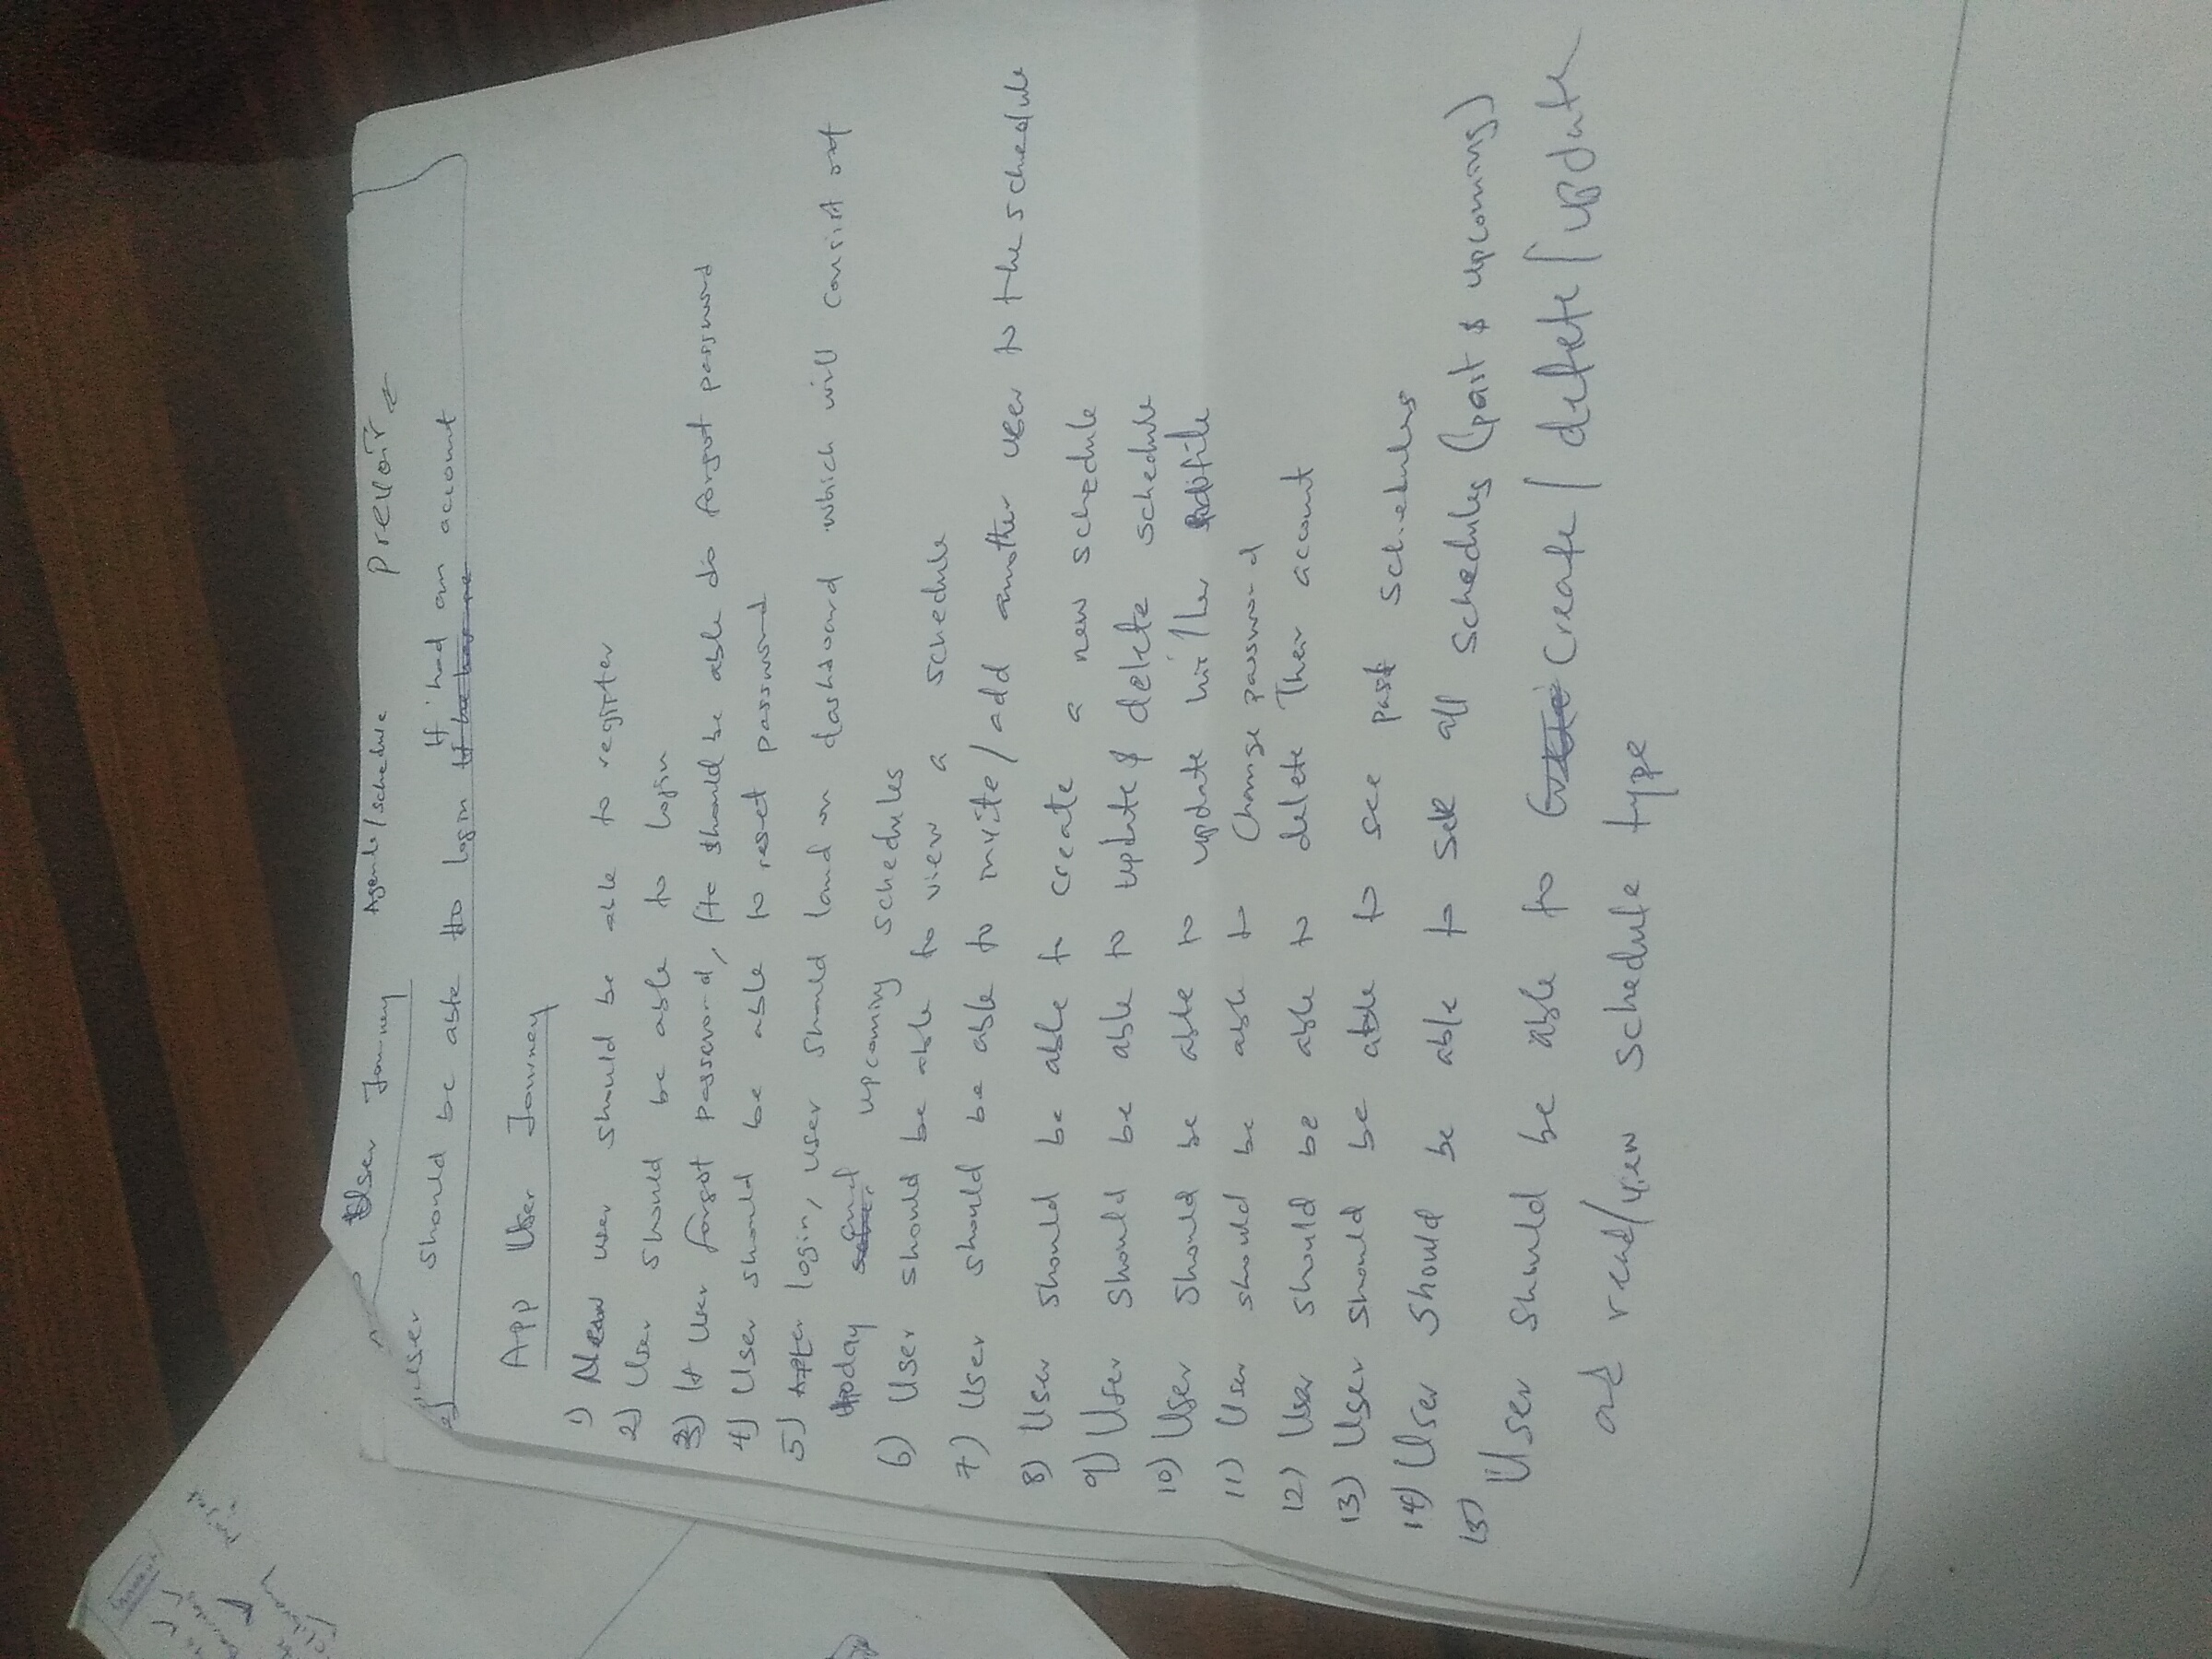 User Journey Agenda/schedule prevoir
user should be able to login If had an account
App User Journey
1) New user should be able to register
2) User should be able to login
3) If User forgot password, He should be able do forgot password
4) User should be able to reset password
5) After login, user should land on dashboard which will consist of
today and upcoming schedules
6) User should be able to view a schedule
7) User should be able to invite/add another user to the schedule
8) User should be able to create a new schedule
9) User should be able to update & delete schedule
10) User should be able to update his/her profile
11) User should be able to Change password
12) User should be able to delete Their account
13) User should be able to see past schedules
14) User should be able to see all schedules (past & upcoming)
15) User should be able to Create/delete/update
and read/view schedule type